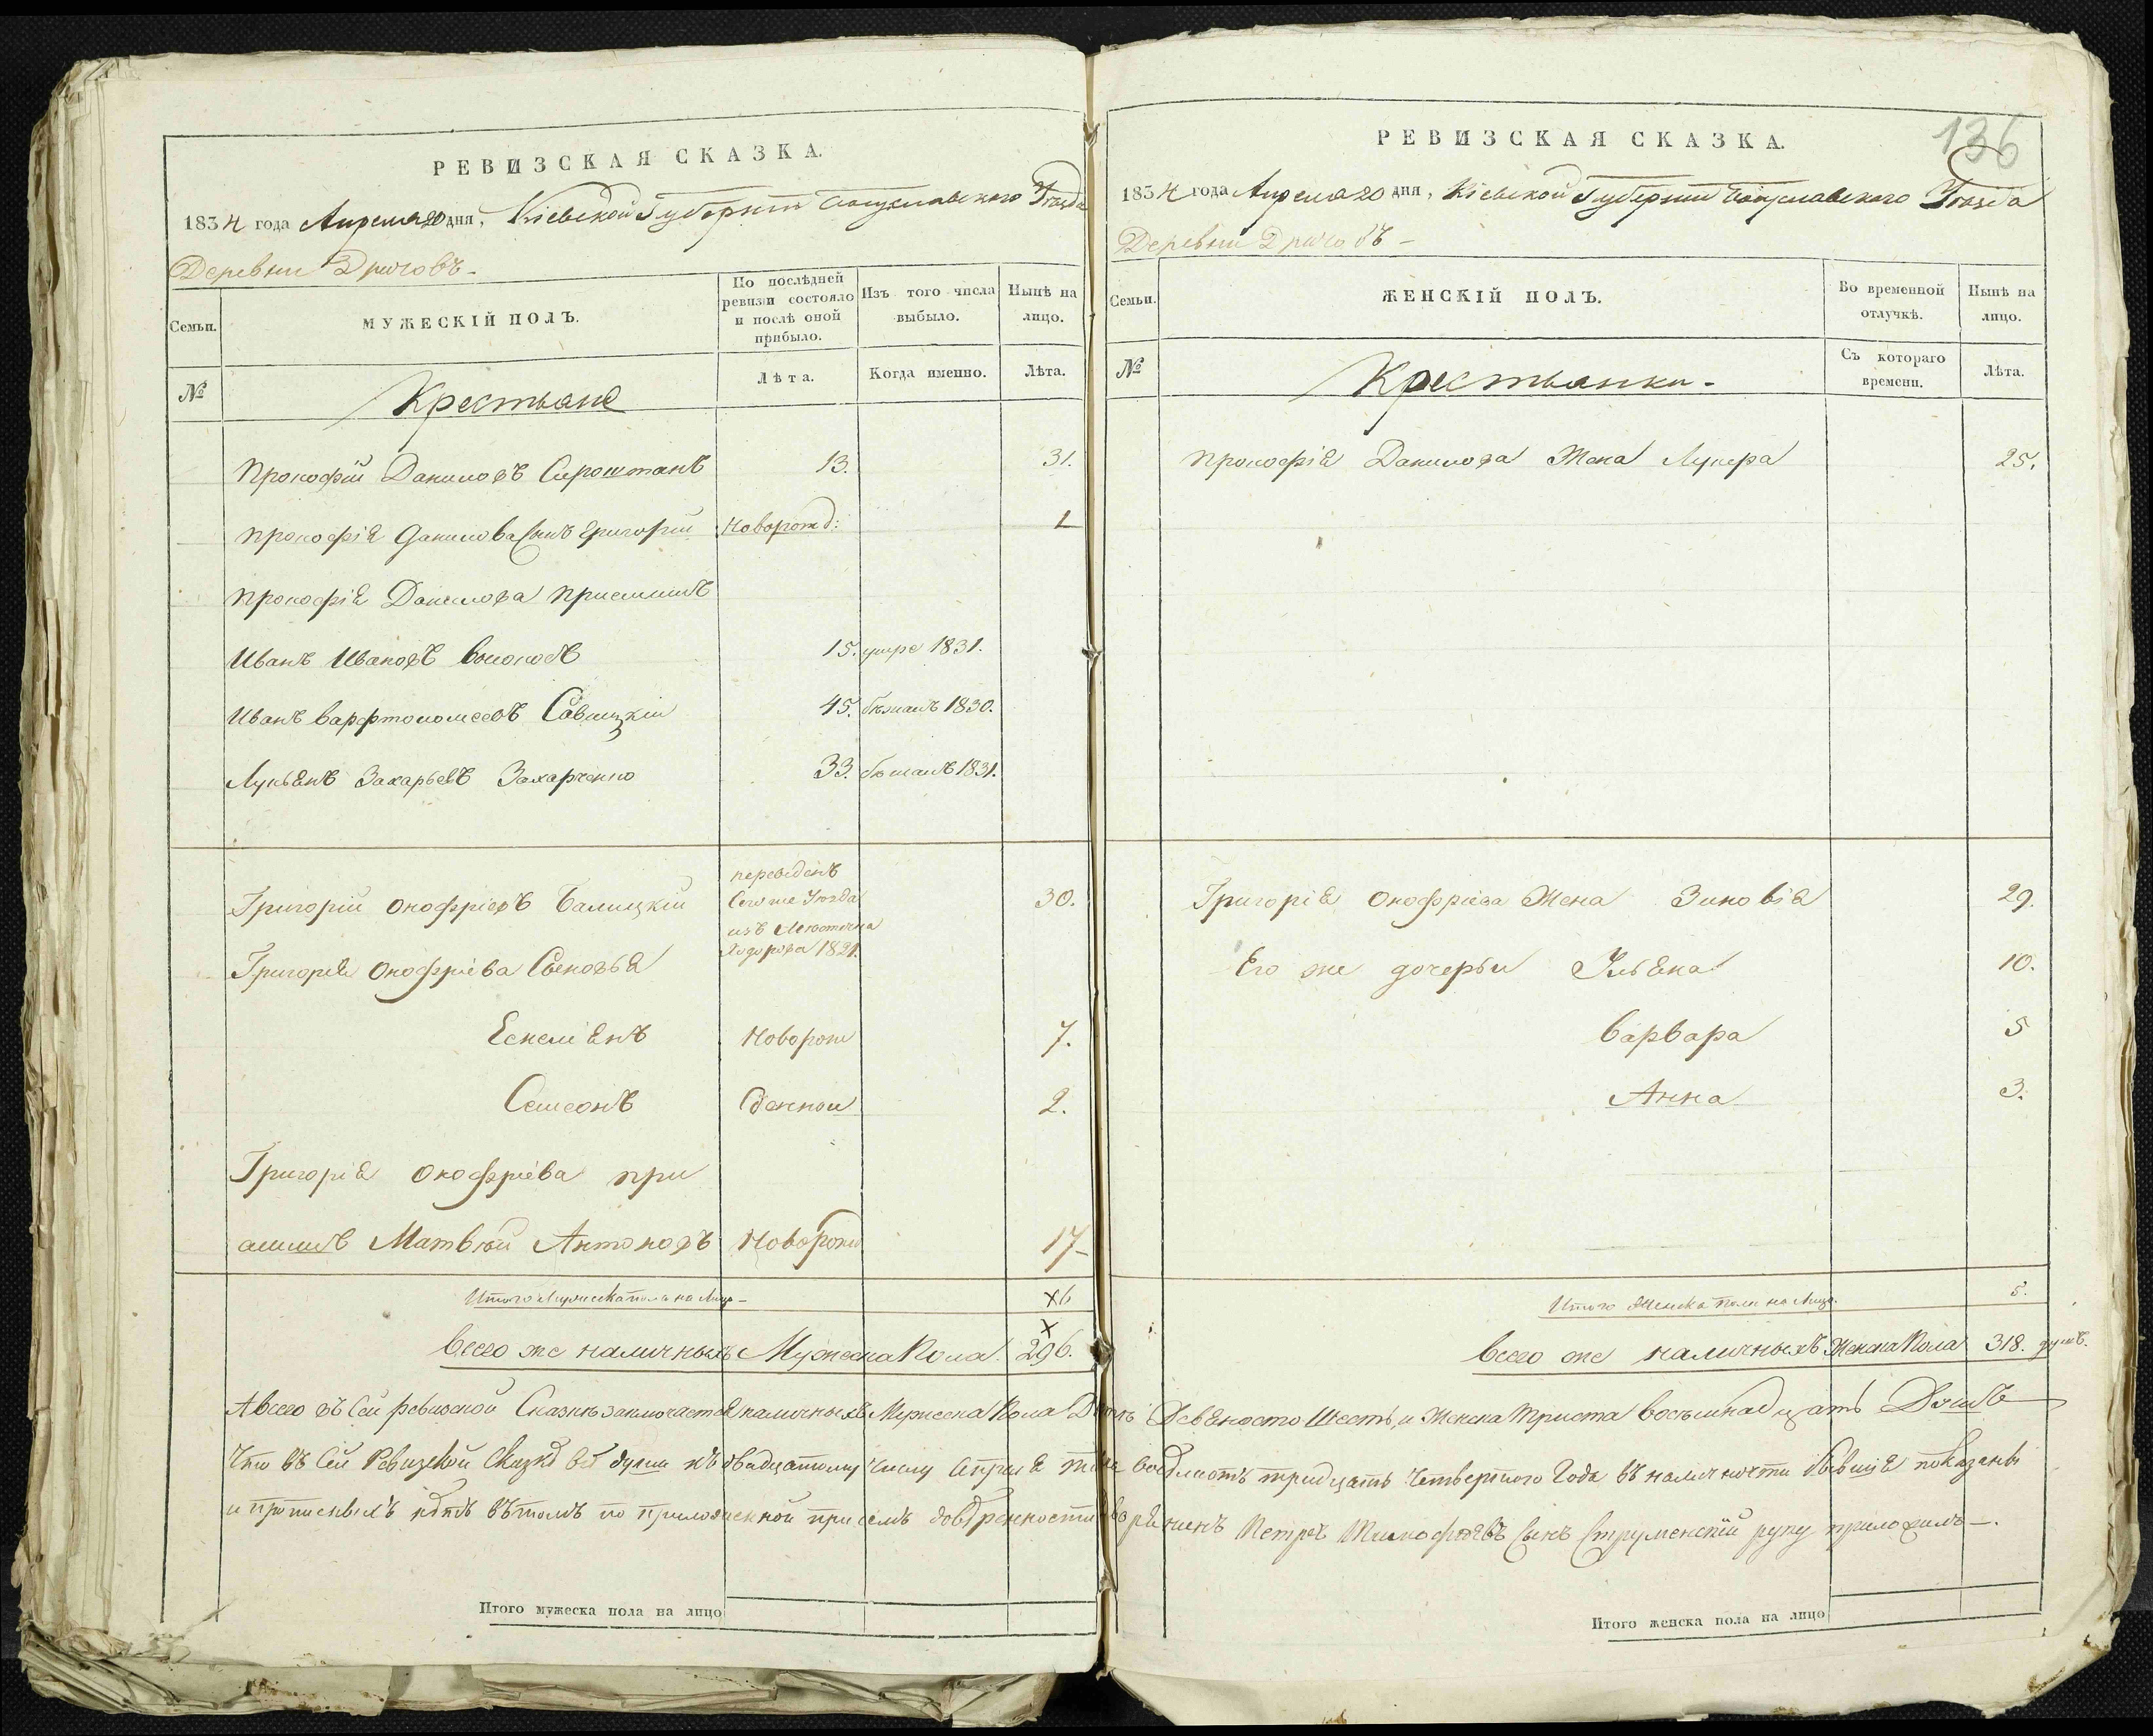 РЕВИЗСКАЯ СКАЗКА.
1834 года Апреля 20 дня, Кіевской Губерніи Богуславского Уезда
Деревни
Семьи.
МУЖЕСКІЙ ПОЛЪ.
По послѣдней ревизіи состояло и послѣ оной прибыло.
Изъ того числа выбыло.
Нынѣ на лицо.
№
Крестьяне
Лѣта.
Когда именно.
Лѣта.
Прокофій Даниловъ 13. 31.
Прокофія Данилова Сынъ Григорій Новорожд: 1
Прокофія Данилова приемишъ
Иванъ Ивановъ 15. умре 1831.
Иванъ Варфтоломеевъ Савицкій 45. бежалъ 1830.
Лукьянъ Захарьевъ Захарченко 33. бежалъ 1831.
переведенъ
Григорій Онофріевъ Балицкій Сего же Уезда 30.
изъ Местечка
Григорія Онофріева Сыновья Ходорова 1821.
Новорож 7.
Семеонъ денной 2.
Григорія Онофріева при
емишъ Матвей Антоновъ Новорож 17
Итого Мужеска пола на Лицо 6
Всего же наличныхъ Мужеска Пола 296.
РЕВИЗСКАЯ СКАЗКА.
136
1834 года Апреля 20 дня, Кіевской Губерніи Богуславского Уезда
Деревни
Семьи.
ЖЕНСКІЙ ПОЛЪ.
Во временной отлучкѣ.
Нынѣ на лицо.
№
Крестьянки.
Съ котораго времени.
Лѣта.
Прокофія Данилова Жена Лукера 25.
Григорія Онофріева Жена Зиновія 29.
Его же дочерьи Ульяна 10.
Варвара 5
Анна 3.
Итого Женска пола на Лицо. 5.
Всего же наличныхъ Женска Пола 318. душъ.
А всего въ Сей ревизской Сказке заключается наличныхъ Мужеска Пола Девяносто Шесть, и Женска Триста восъмнадцать Душъ
Что въ Сей Ревизской Сказке все души къ двадцатому числу Апреля тридцать четвертого Года въ наличности бывшіе показаны
и прописныхъ нетъ вътомъ по приложенной при семъ доверенности Дворянинъ Петръ Тимофеевъ Сынъ Струменскій руку приложилъ
Итого мужеска пола на лицо
Итого женска пола на лицо